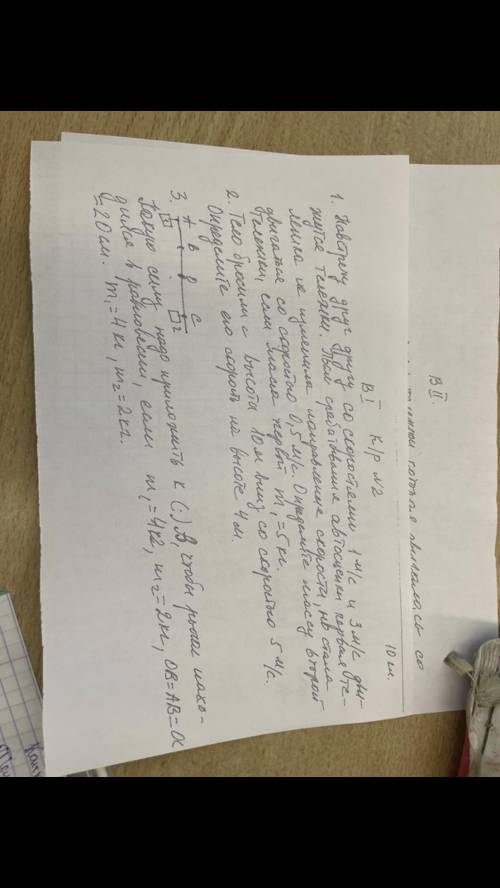 В II.
10 м.
В I К/р №2
1. Навстречу друг другу со скоростями 1 м/с и 3 м/с дви-
жутся тележки. После срабатывания автосцепки первая те-
лежка не изменила направления скорости, но стала
двигаться со скоростью 0,5 м/с. Определите массу второй
тележки, если масса первой m₁ = 5 кг.
2. Тело бросили с высоты 10 м вниз со скоростью 5 м/с.
Определите его скорость на высоте 4 м.
3. A B C
1 2
Какую силу надо приложить к (·) В, чтобы рычаг нахо-
дился в равновесии, если m₁ = 4 кг, m₂ = 2 кг, OB = AB = OC
= 20 см. m₁ = 4 кг, m₂ = 2 кг.